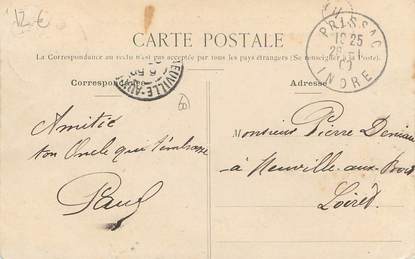 12 €
CARTE POSTALE
La Correspondance au recto n'est pas acceptée par tous les pays étrangers (Se renseigner à la Poste).
PRISSAC
18 25
INDRE
NEUVILLE-AUX
Correspon
Adresse
Amitié
ton Oncle qui t'embrasse
Paul
Monsieur Pierre Deniau
à Neuville-aux-Bois
Loiret